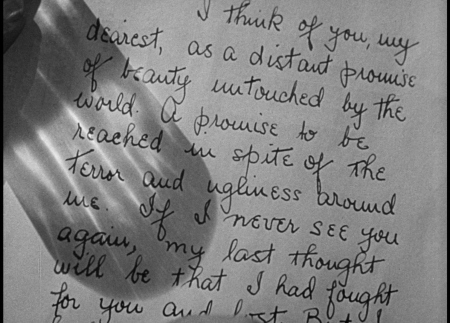 I think of you, my
dearest, as a distant promise
of beauty untouched by the
world. A promise to be
reached in spite of the
terror and ugliness around
me. If I never see you
again, my last thought
will be that I had fought
for you and lost. But I